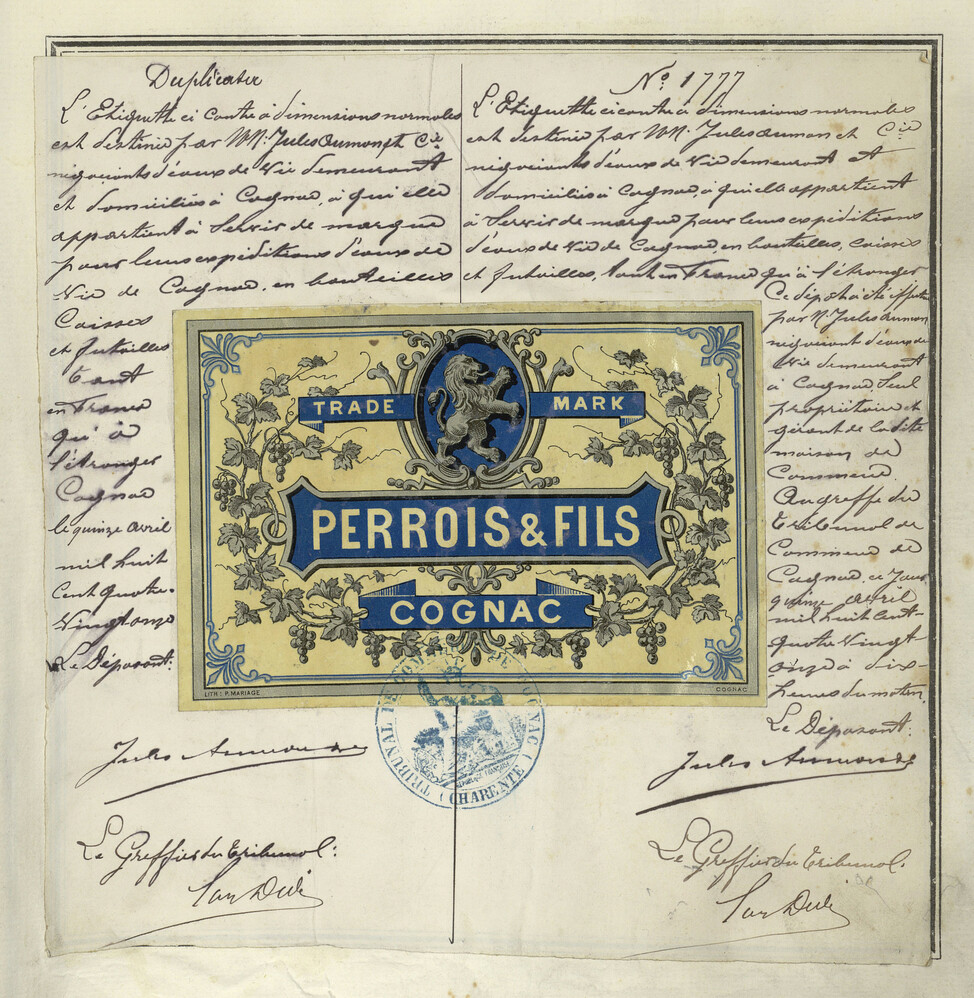 Duplicata
L'Etiquette ci contre à dimensions normales
est destinée par MM. Jules Aumont & Cie
négociants d'eaux de Vie demeurant
et domiciliés à Cognac, à qui elle
appartient à Servir de marque
pour leurs expéditions d'eaux de
Vie de Cognac, en bouteilles
Caisses
et futailles
tant
en France
qu'à
l'étranger
Cognac
le quinze avril
mil huit
cent quatre-
vingt onze
Le Déposant:
Jules
Le Greffier du Tribunal:
No. 1777
L'Etiquette ci contre à dimensions normales
est destinée par MM. Jules Aumont et Cie
négociants d'eaux de Vie demeurant et
domiciliés à Cognac, à qui elle appartient
à Servir de marque pour leurs expéditions
d'eaux de Vie de Cognac en bouteilles, caisses
et futailles, tant en France qu'à l'étranger
Ce dépôt a été effectué
par M. Jules Aumont
négociant d'eaux de
Vie demeurant
à Cognac, Seul
propriétaire et
gérant de la dite
maison de
Commerce.
Au greffe du
Tribunal de
Commerce de
Cognac, ce jour
quinze avril
mil huit cent
quatre vingt
onze à dix
heures du matin
Le Déposant:
Jules
Le Greffier du Tribunal.
TRADE MARK
PERROIS & FILS
COGNAC
LITH: P. MARIAGE
COGNAC
TRIBUNAL DE COMMERCE DE COGNAC
(CHARENTE)